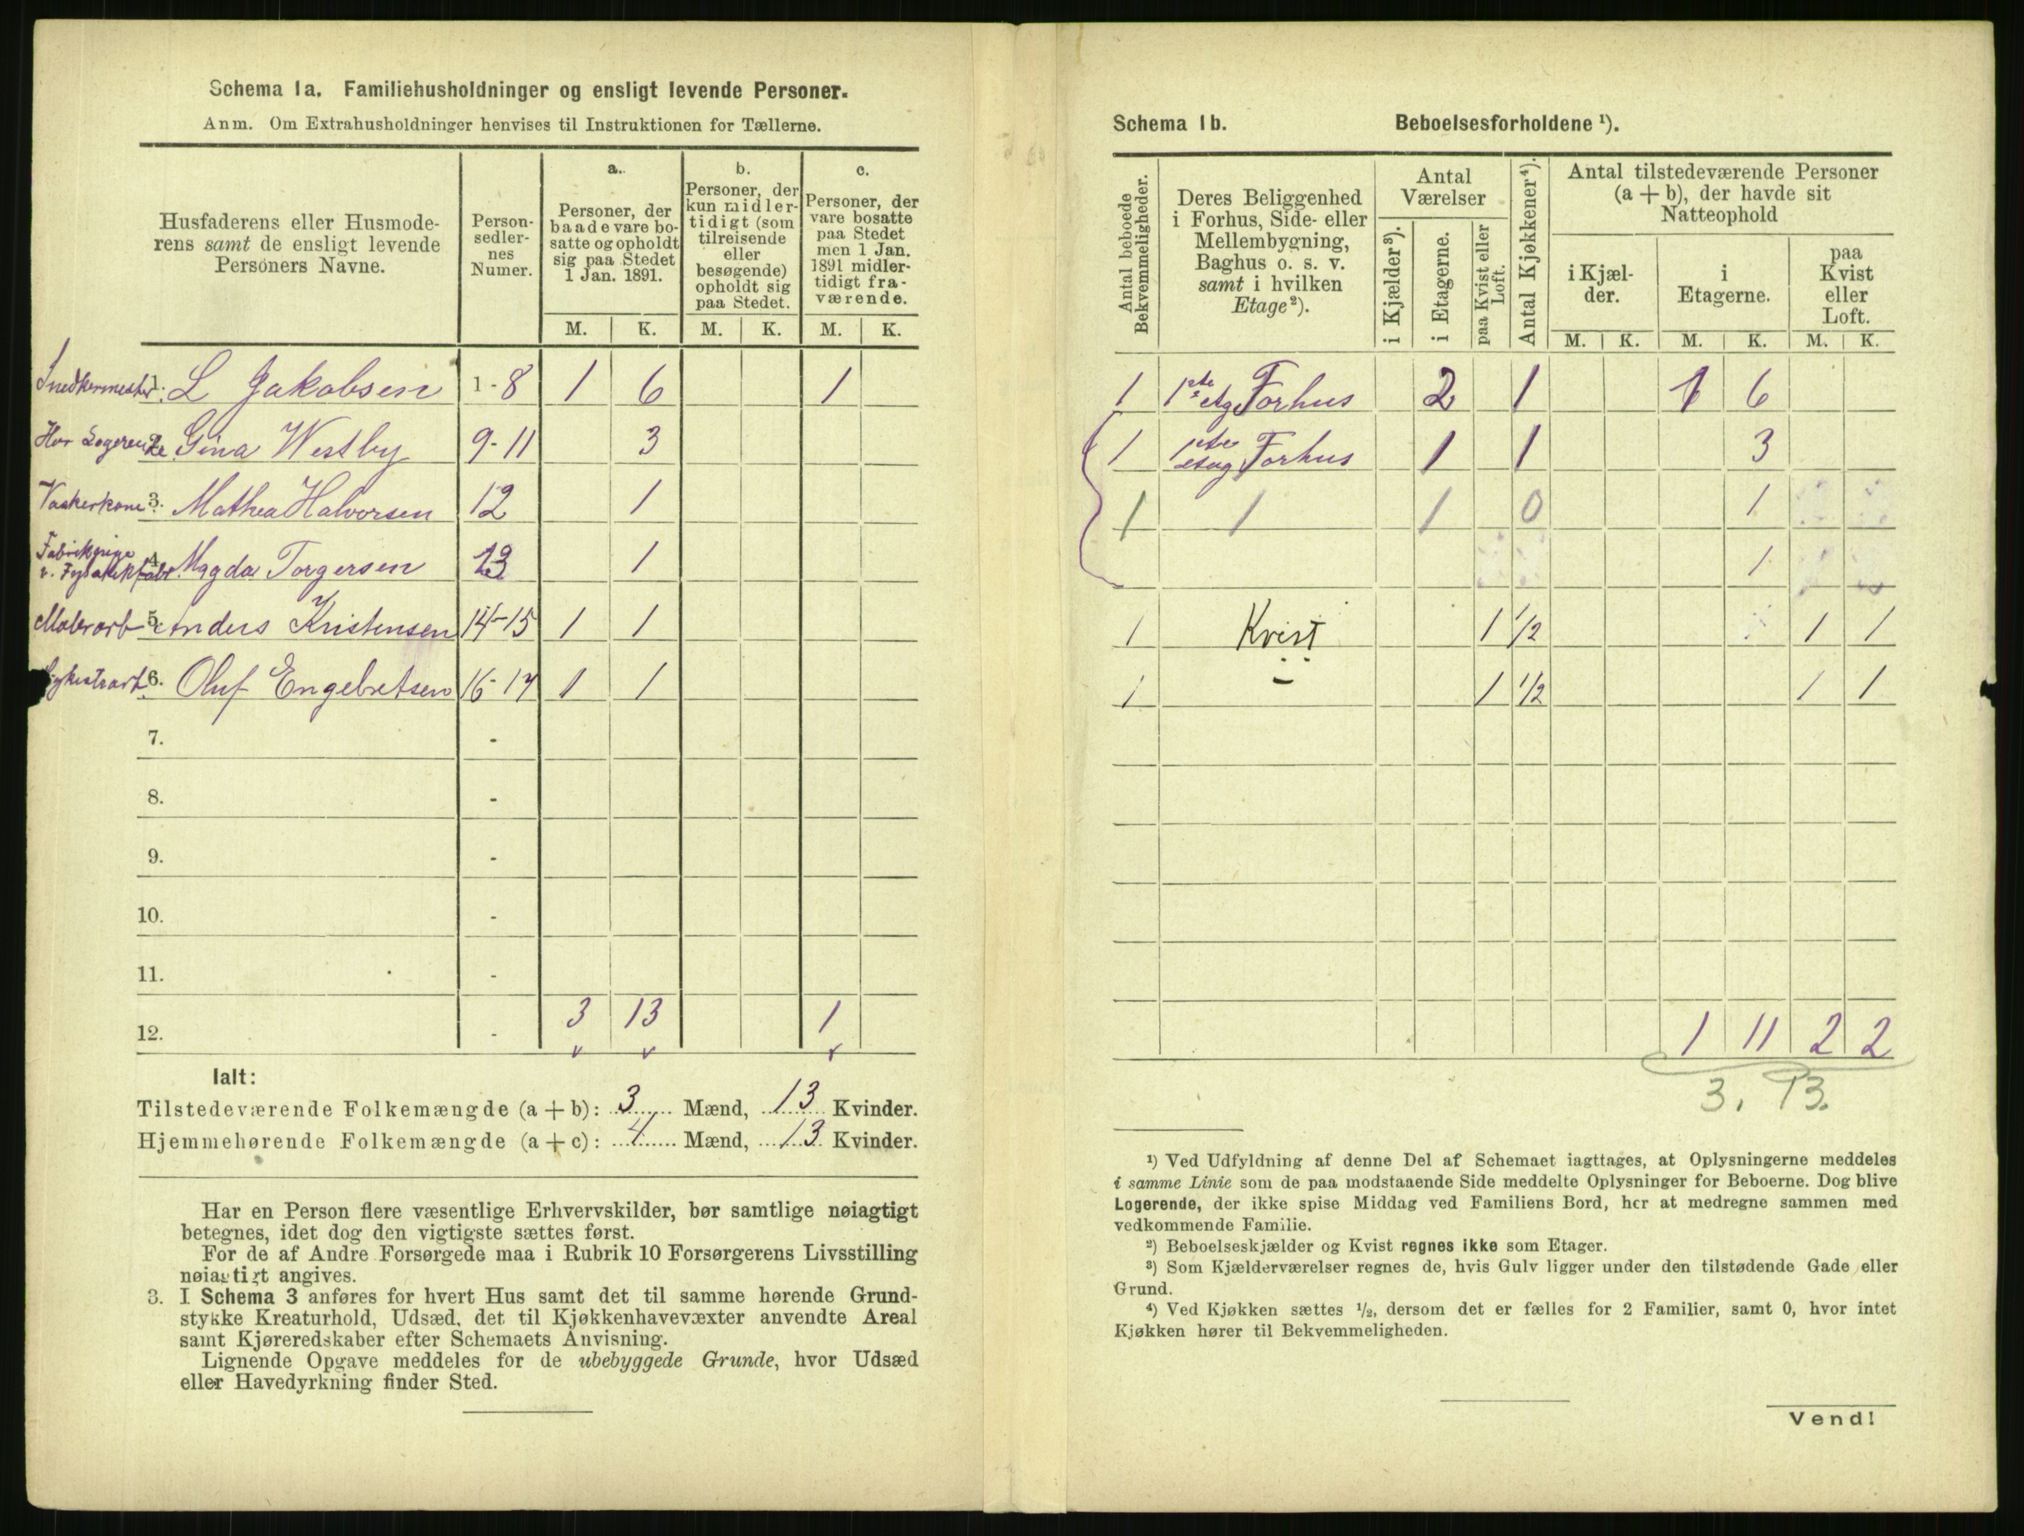 Schema 1a. Familiehusholdninger og ensligt levende Personer.
Anm. Om Extrahusholdninger henvises til Instruktionen for Tællerne.
Husfaderens eller Husmode-
rens samt de ensligt levende
Personers Navne.
Person-
sedler-
nes
Numer.
a.
Personer, der
baade vare bo-
satte og opholdt
sig paa Stedet
1 Jan. 1891.
b.
Personer, der
kun midler-
tidigt (som
tilreisende
eller
besøgende)
opholdt sig
paa Stedet.
c.
Personer, der
vare bosatte
paa Stedet
men 1 Jan.
1891 midler-
tidigt fra-
værende.
M. K. M. K. M. K.
Snedkermester 1. L Jakobsen 1-8 1 6 1
Hos Logerende 2. Gina Westby 9-11 3
Vaskerkone 3. Mathea Halvorsen 12 1
Fabrikpige
4. Magda Torgersen 13 1
Malerarb 5. Anders Kristensen 14-15 1 1
6. Oluf Engebretsen 16-17 1 1
7. -
8. -
9. -
10. -
11. -
12. - 3 13 1
Ialt:
Tilstedeværende Folkemængde (a + b): 3 Mænd, 13 Kvinder.
Hjemmehørende Folkemængde (a + c): 4 Mænd, 13 Kvinder.
Har en Person flere væsentlige Erhvervskilder, bør samtlige nøiagtigt
betegnes, idet dog den vigtigste sættes først.
For de af Andre Forsørgede maa i Rubrik 10 Forsørgerens Livsstilling
nøiagtigt angives.
3. I Schema 3 anføres for hvert Hus samt det til samme hørende Grund-
stykke Kreaturhold, Udsæd, det til Kjøkkenhavevæxter anvendte Areal
samt Kjøreredskaber efter Schemaets Anvisning.
Lignende Opgave meddeles for de ubebyggede Grunde, hvor Udsæd
eller Havedyrkning finder Sted.
Schema 1b. Beboelsesforholdene ¹).
Antal beboede
Bekvemmeligheder.
Deres Beliggenhed
i Forhus, Side- eller
Mellembygning,
Baghus o. s. v.
samt i hvilken
Etage²).
Antal
Værelser
i Kjælder³).
i Etagerne.
paa Kvist eller
Loft.
Antal Kjøkkener⁴).
Antal tilstedeværende Personer
(a + b), der havde sit
Natteophold
i Kjæl-
der.
i
Etagerne.
paa
Kvist
eller
Loft.
M. K. M. K. M. K.
1 1ste Etg Forhus 2 1 1 6
1 1ste etag Forhus 1 1 3
1 1 1 0 1
1
1 Kvist 1 1/2 1 1
1 - 1 1/2 1 1
1 11 2 2
3. 13.
¹) Ved Udfyldning af denne Del af Schemaet iagttages, at Oplysningerne meddeles
i samme Linie som de paa modstaaende Side meddelte Oplysninger for Beboerne. Dog blive
Logerende, der ikke spise Middag ved Familiens Bord, her at medregne sammen med
vedkommende Familie.
²) Beboelseskjælder og Kvist regnes ikke som Etager.
³) Som Kjælderværelser regnes de, hvis Gulv ligger under den tilstødende Gade eller
Grund.
⁴) Ved Kjøkken sættes ½, dersom det er fælles for 2 Familier, samt 0, hvor intet
Kjøkken hører til Bekvemmeligheden.
Vend!